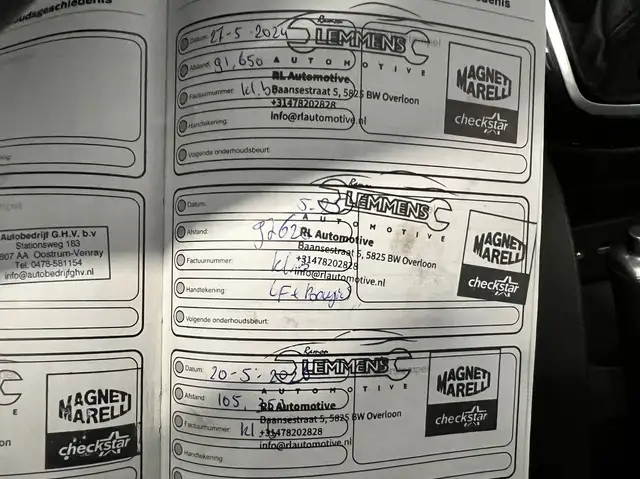 oudsgeschiedenis
denis
Datum: 27-5-2024
Remon
LEMMENS
AUTOMOTIVE
Afstand: 91,650
RL Automotive
Factuurnummer: kl.b
Baansestraat 5, 5825 BW Overloon
+31478202828
info@rlautomotive.nl
Handtekening:
Volgende onderhoudsbeurt:
MAGNETI
MARELLI
checkstar
Autobedrijf G.H.V. b.v
Stationsweg 183
5807 AA Oostrum-Venray
Tel. 0478-581154
info@autobedrijfghv.nl
Datum:
Remon
LEMMENS
AUTOMOTIVE
Afstand:
RL Automotive
Baansestraat 5, 5825 BW Overloon
Factuurnummer:
+31478202828
info@rlautomotive.nl
Handtekening:
Volgende onderhoudsbeurt:
MAGNETI
MARELLI
checkstar
MAGNETI
MARELLI
checkstar
Datum: 20-5-
Remon
LEMMENS
AUTOMOTIVE
Afstand: 105,
RL Automotive
Baansestraat 5, 5825 BW Overloon
Factuurnummer: kl
+31478202828
info@rlautomotive.nl
Handtekening:
MAGNETI
MARELLI
checkstar